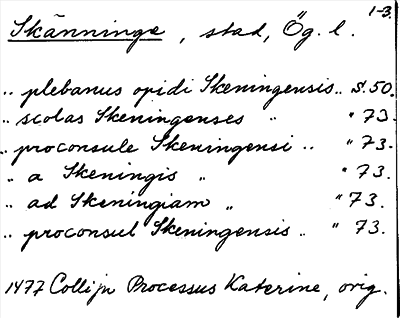 1-3.
Skänninge, stad, Ög. l.
„ plebanus opidi Skeningensis „ S. 50.
„ scolas Skeningenses „ " 73.
„ proconsule Skeningensi „ " 73.
„ a Skeningis „ " 73.
„ ad Skeningiam „ " 73.
„ proconsul Skeningensis „ " 73.
1477 Collijn Processus Katerine, orig.